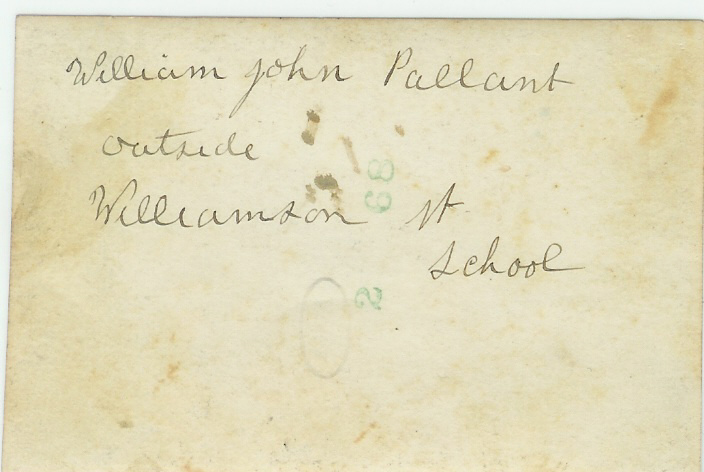 William John Pallant
outside
Williamson st
School
2 68